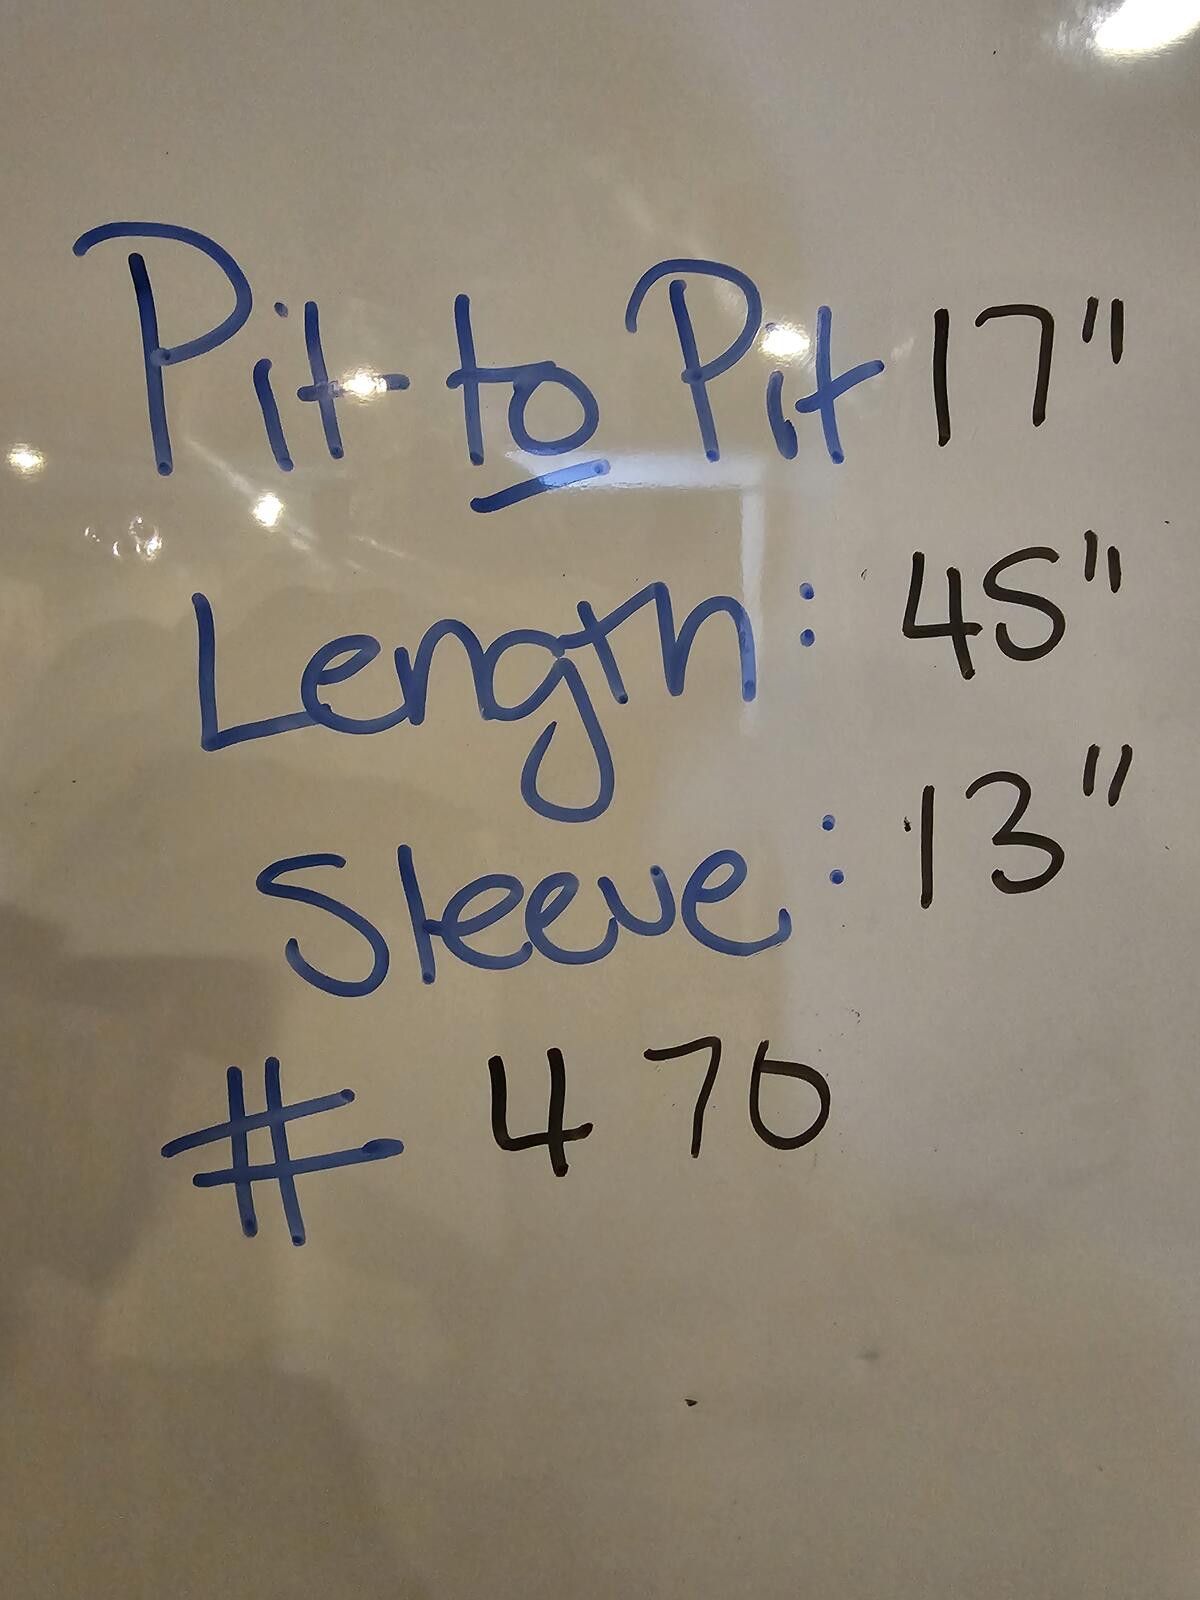 Pit to Pit 17"
Length: 45"
Sleeve: 13"
# 470